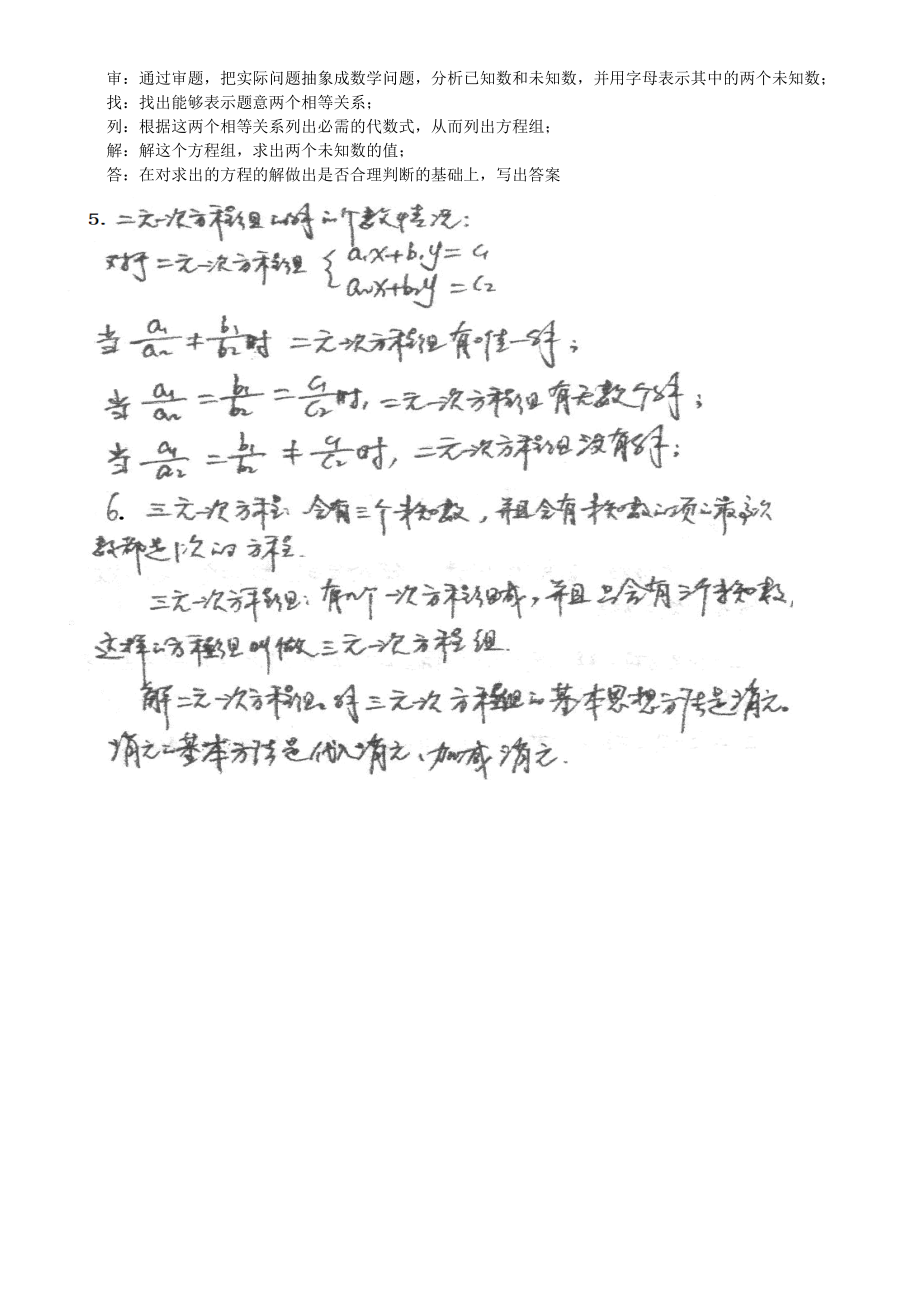 审：通过审题，把实际问题抽象成数学问题，分析已知数和未知数，并用字母表示其中的两个未知数；
找：找出能够表示题意两个相等关系；
列：根据这两个相等关系列出必需的代数式，从而列出方程组；
解：解这个方程组，求出两个未知数的值；
答：在对求出的方程的解做出是否合理判断的基础上，写出答案
5. 二元一次方程组的解的个数情况：
对于二元一次方程组 { a₁x+b₁y=c₁
a₂x+b₂y=c₂
当 a₁/a₂ ≠ b₁/b₂ 时 二元一次方程组有唯一解；
当 a₁/a₂ = b₁/b₂ = c₁/c₂ 时，二元一次方程组有无数个解；
当 a₁/a₂ = b₁/b₂ ≠ c₁/c₂ 时，二元一次方程组没有解；
6. 三元一次方程：含有三个未知数，并且含有未知数的项的最高次
数都是1次的方程.
三元一次方程组：有几个一次方程组成，并且只含有三个未知数，
这样的方程组叫做三元一次方程组.
解二元一次方程组、解三元一次方程组的基本思想方法是消元。
消元的基本方法是代入消元、加减消元.